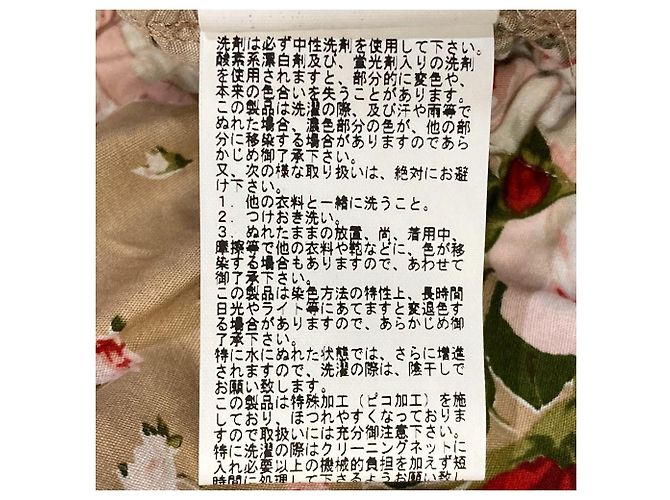 洗剤は必ず中性洗剤を使用して下さい。
酸素系漂白剤及び、蛍光剤入りの洗剤
を使用されますと、部分的に変色や、
本来の色合いを失うことがあります。
この製品は洗濯の際、及び汗や雨等で
ぬれた場合、濃色部分の色が、他の部
分に移染する場合がありますのであら
かじめ御了承下さい。
又、次の様な取り扱いは、絶対にお避
け下さい。
1．他の衣料と一緒に洗うこと。
2．つけおき洗い。
3．ぬれたままの放置、尚、着用中、
摩擦等で他の衣料や鞄などに、色が移
染する場合もありますので、あわせて
御了承下さい。
この製品は染色方法の特性上、長時間
日光やライト等にあてますと変退色す
る場合がありますので、あらかじめ御
了承下さい。
特に水にぬれた状態では、さらに増進
されますので、洗濯の際は、陰干しで
お願い致します。
この製品は特殊加工（ピコ加工）を施
しており、ほつれやすくなっておりま
すので取扱いには充分御注意下さい。
特に洗濯の際はクリーニングネットに
入れ必要以上の機械的負担を加えず短
時間に処理して下さるようお願い致しま